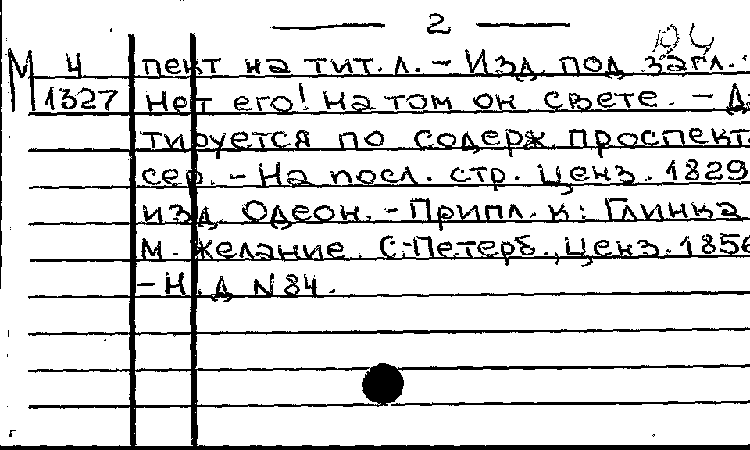 — 2 —
М 4 пект на тит. л. – Изд. под загл.:
1327 Нет его! На том он свете. – Да
тируется по содерж проспект
сер. – На посл. стр. Ценз. 1829
изд. Одеон. – Припл. к: Глинка
М. Желание. С.-Петерб., Ценз. 1856
– Н. д N 84.